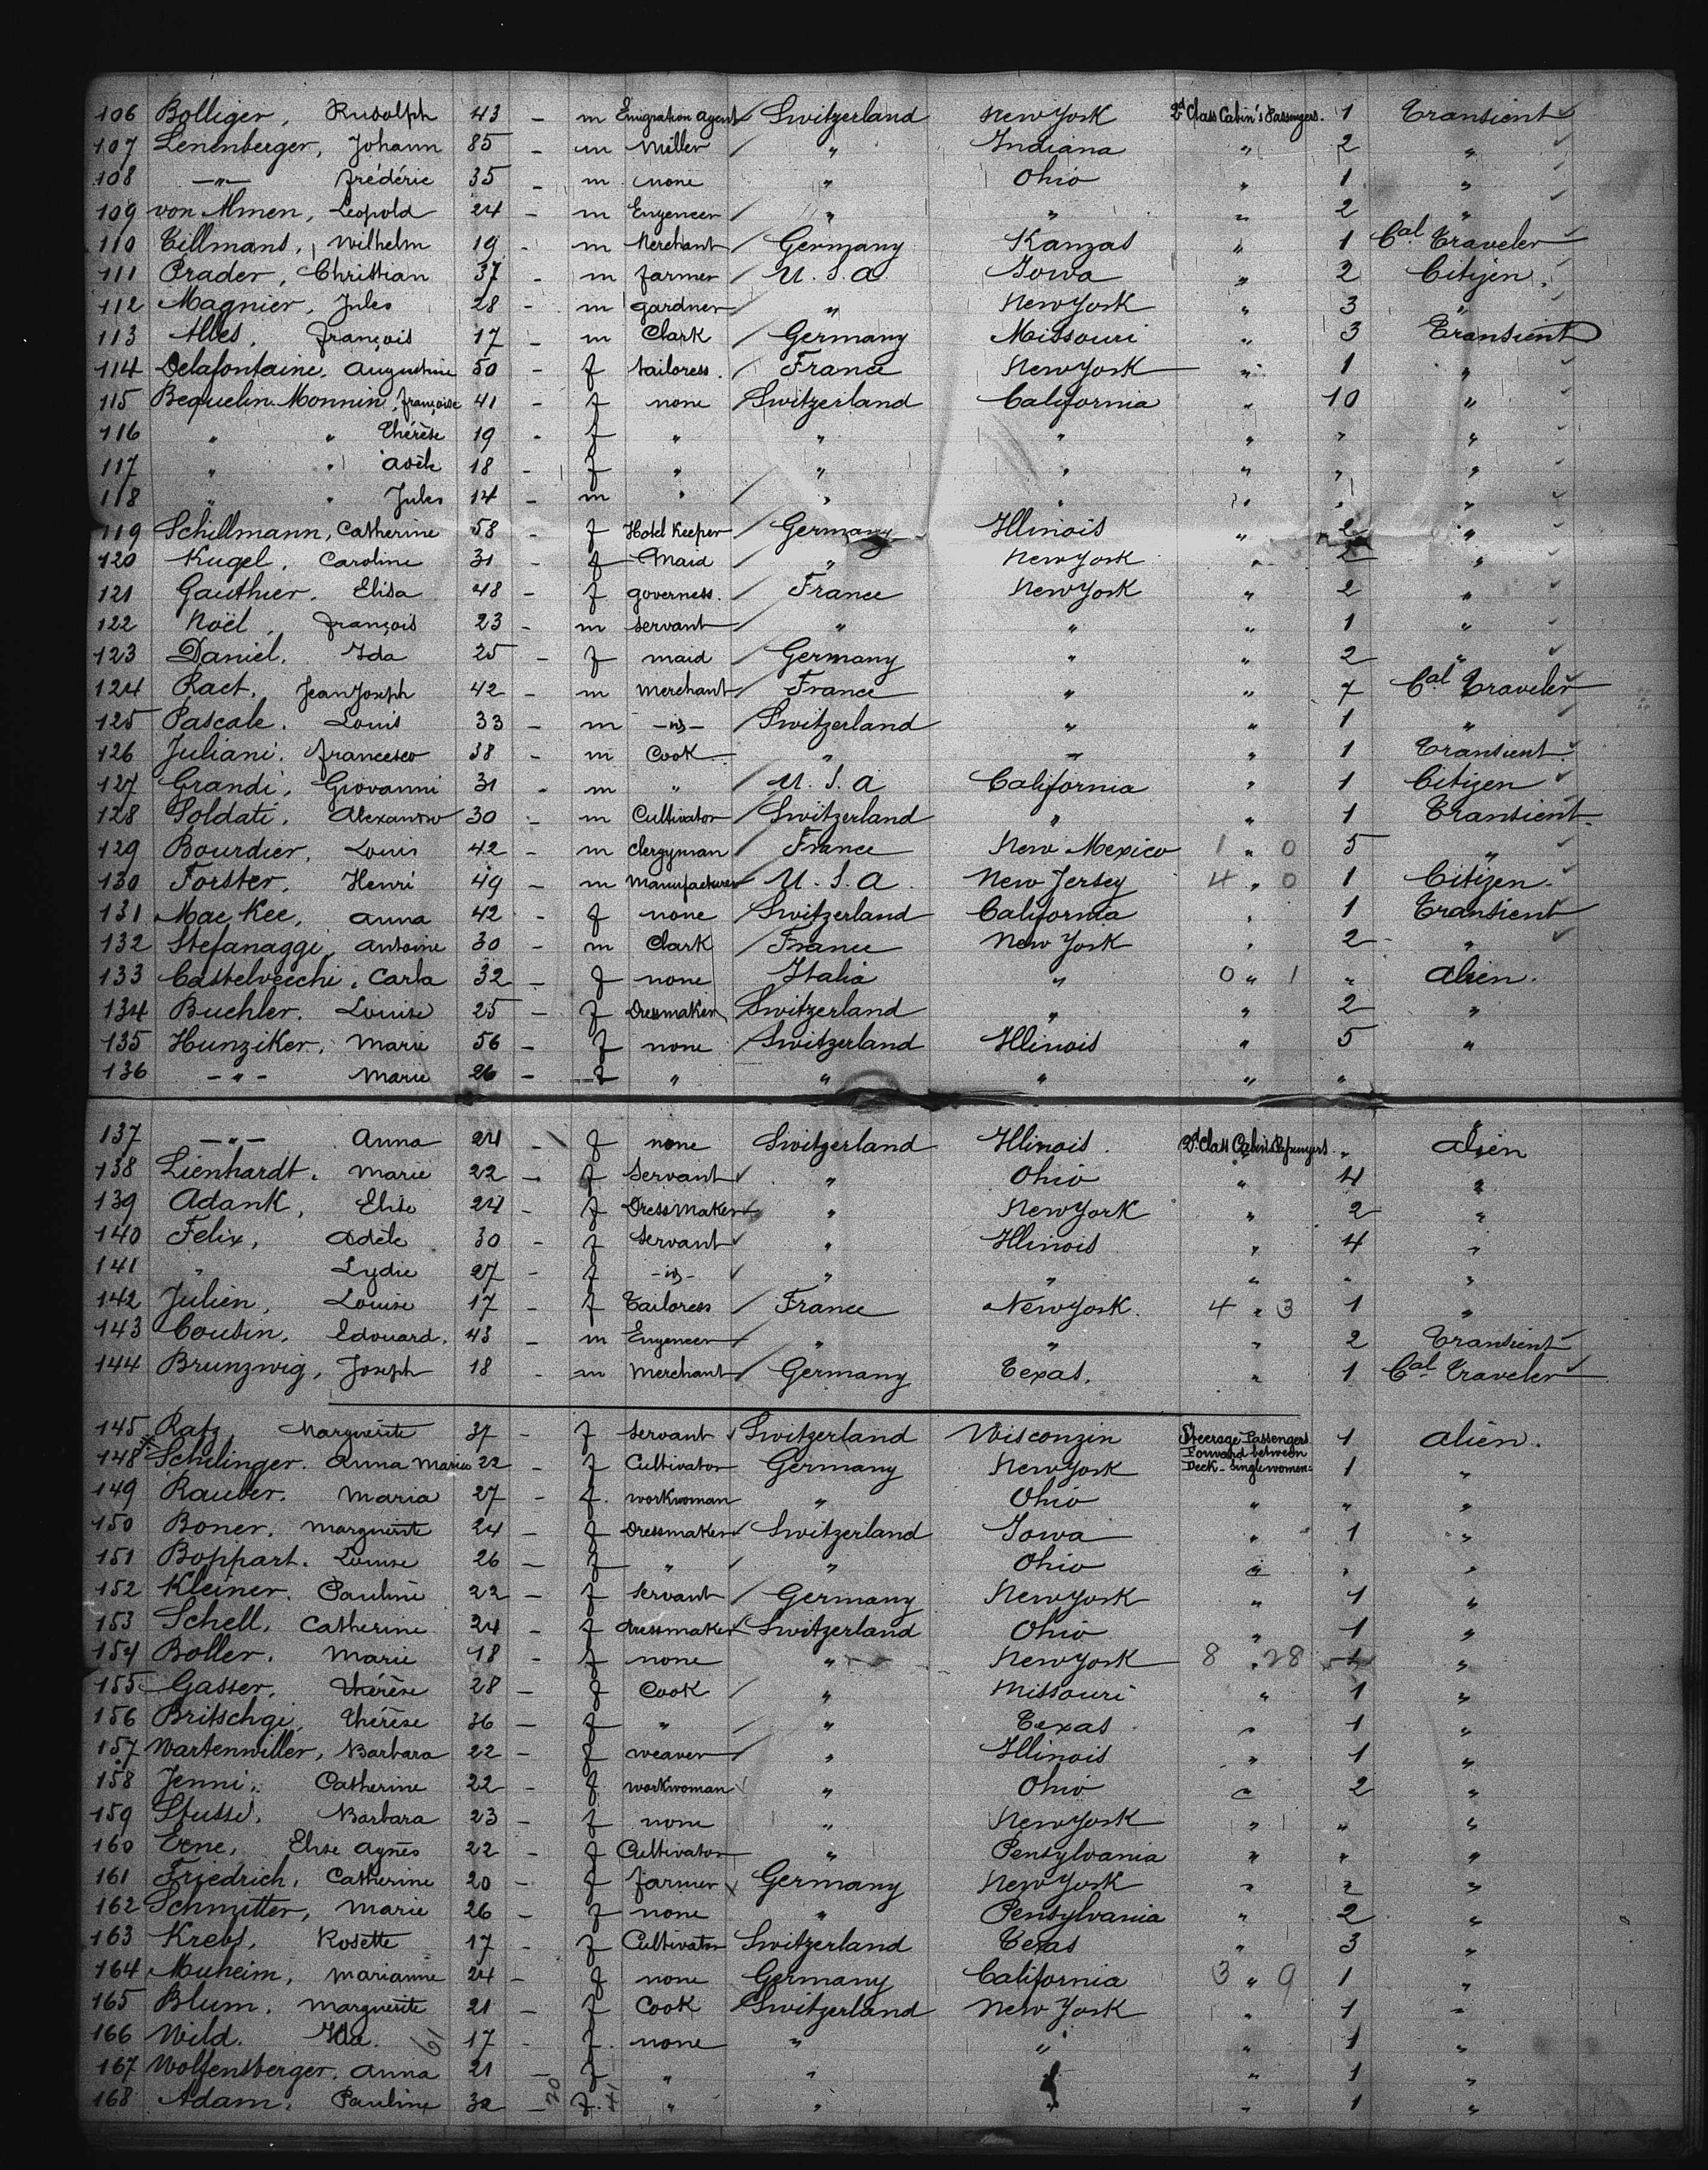 106 Bolliger, Rudolph 43 - m Emigration Agent Switzerland New York 2d Class Cabin's Passengers. 1 Transient
107 Lenenberger, Johann 85 - m Miller " Indiana " 2 "
108 -"- frédéric 35 - m none " Ohio " 1 "
109 von Almen, Leopold 24 - m Engeneer " " " 2 "
110 Tillmans, Wilhelm 19 - m Merchant Germany Kanzas " 1 Cal Traveler
111 Prader, Christian 37 - m farmer U.S.a Iowa " 2 Citizen.
112 Magnier, Jules 28 - m gardner " New York " 3 "
113 Alles, françois 17 - m Clark Germany Missouri " 3 Transient
114 Delafontaine, Augustine 50 - f tailoress. France New York " 1 "
115 Bequelin-Monnin, françoise 41 - f none Switzerland California " 10 "
116 " " Thérèse 19 - f " " " " " "
117 " " Adèle 18 - f " " " " " "
118 " " Jules 14 - m " " " " " "
119 Schillmann, Catherine 58 - f Hotel Keeper Germany Illinois " 2 "
120 Kugel, Caroline 31 - f Maid " New York " 2 "
121 Gauthier, Elisa 48 - f governess. France New York " 2 "
122 Noël, françois 23 - m servant " " " 1 "
123 Daniel, Ida 25 - f maid Germany " " 2 "
124 Ract, Jean Joseph 42 - m Merchant France " " 7 Cal Traveler
125 Pascale, Louis 33 - m -id- Switzerland " " 1 "
126 Juliani, francesco 38 - m Cook " " " 1 Transient
127 Grandi, Giovanni 31 - m " U.S.a California " 1 Citizen
128 Soldati, Alexandro 30 - m Cultivator Switzerland " " 1 Transient
129 Bourdier, Louis 42 - m clergyman France New Mexico 1 " 0 5 "
130 Forster, Henri 49 - m Manufacturer U.S.a. New Jersey 4 " 0 1 Citizen
131 Mac Kee, Anna 42 - f none Switzerland California " 1 Transient
132 Stefanaggi, Antoine 30 - m Clark France New York " 2 "
133 Castelvecchi, Carla 32 - f none Italia " 0 " 1 " alien.
134 Buchler, Louise 25 - f Dressmaker Switzerland " " 2 "
135 Hunziker, Marie 56 - f none Switzerland Illinois " 5 "
136 -"- Marie 26 - f " " " " "
137 -"- Anna 24 - f none Switzerland Illinois. 2d Class Cabin's Passengers " alien
138 Lienhardt, Marie 22 - f Servant " Ohio " 4 "
139 Adank, Elise 24 - f DressMaker " New York " 2 "
140 Felix, Adèle 30 - f Servant " Illinois " 4 "
141 " Lydie 27 - f -id- " " " " "
142 Julien, Louise 17 - f Tailoress France New York. 4 " 3 1 "
143 Cousin, Edouard. 43 - m Engeneer " " " 2 Transient
144 Brunzwig, Joseph 18 - m Merchant Germany Texas. " 1 Cal Traveler
145 Ratz Marguerite 37 - f servant Switzerland Wisconzin Steerage Passengers Forward between Deck - Single women 1 alien.
148 Schilinger. Anna Maria 22 - f Cultivator Germany New York 1 "
149 Rauber. Maria 27 - f. workwoman " Ohio " " "
150 Boner. Marguerite 24 - f Dressmaker Switzerland Iowa " 1 "
151 Boppart. Louise 26 - f " " Ohio " " "
152 Kleiner. Pauline 22 - f servant Germany New York " 1 "
153 Schell, Catherine 24 - f dressmaker Switzerland Ohio " 1 "
154 Boller. Marie 18 - f none " New York 8 " 28 1 "
155 Gasser, Thérèse 28 - f Cook " Missouri " 1 "
156 Britschgi, Thérèse 36 - f " " Texas " 1 "
157 Wartenwiller, Barbara 22 - f weaver " Illinois " 1 "
158 Jenni, Catherine 22 - f workwoman " Ohio " 2 "
159 Stussi, Barbara 23 - f none " New York " " "
160 Erne, Elise Agnès 22 - f Cultivator " Pensylvania " " "
161 Friedrich, Catherine 20 - f farmer Germany New York " 2 "
162 Schmitter, Marie 26 - f none " Pensylvania " 2 "
163 Krebs, Rosette 17 - f Cultivator Switzerland Texas " 3 "
164 Muheim, Marianne 24 - f none Germany California 3 " 9 1 "
165 Blum, Marguerite 21 - f Cook Switzerland New York " 1 "
166 Wild. Ida. 61 17 - f. none " " " 1 "
167 Wolfensberger, Anna 21 - f " " " " 1 "
168 Adam, Pauline 32 - 20 f. 41 " " " " 1 "